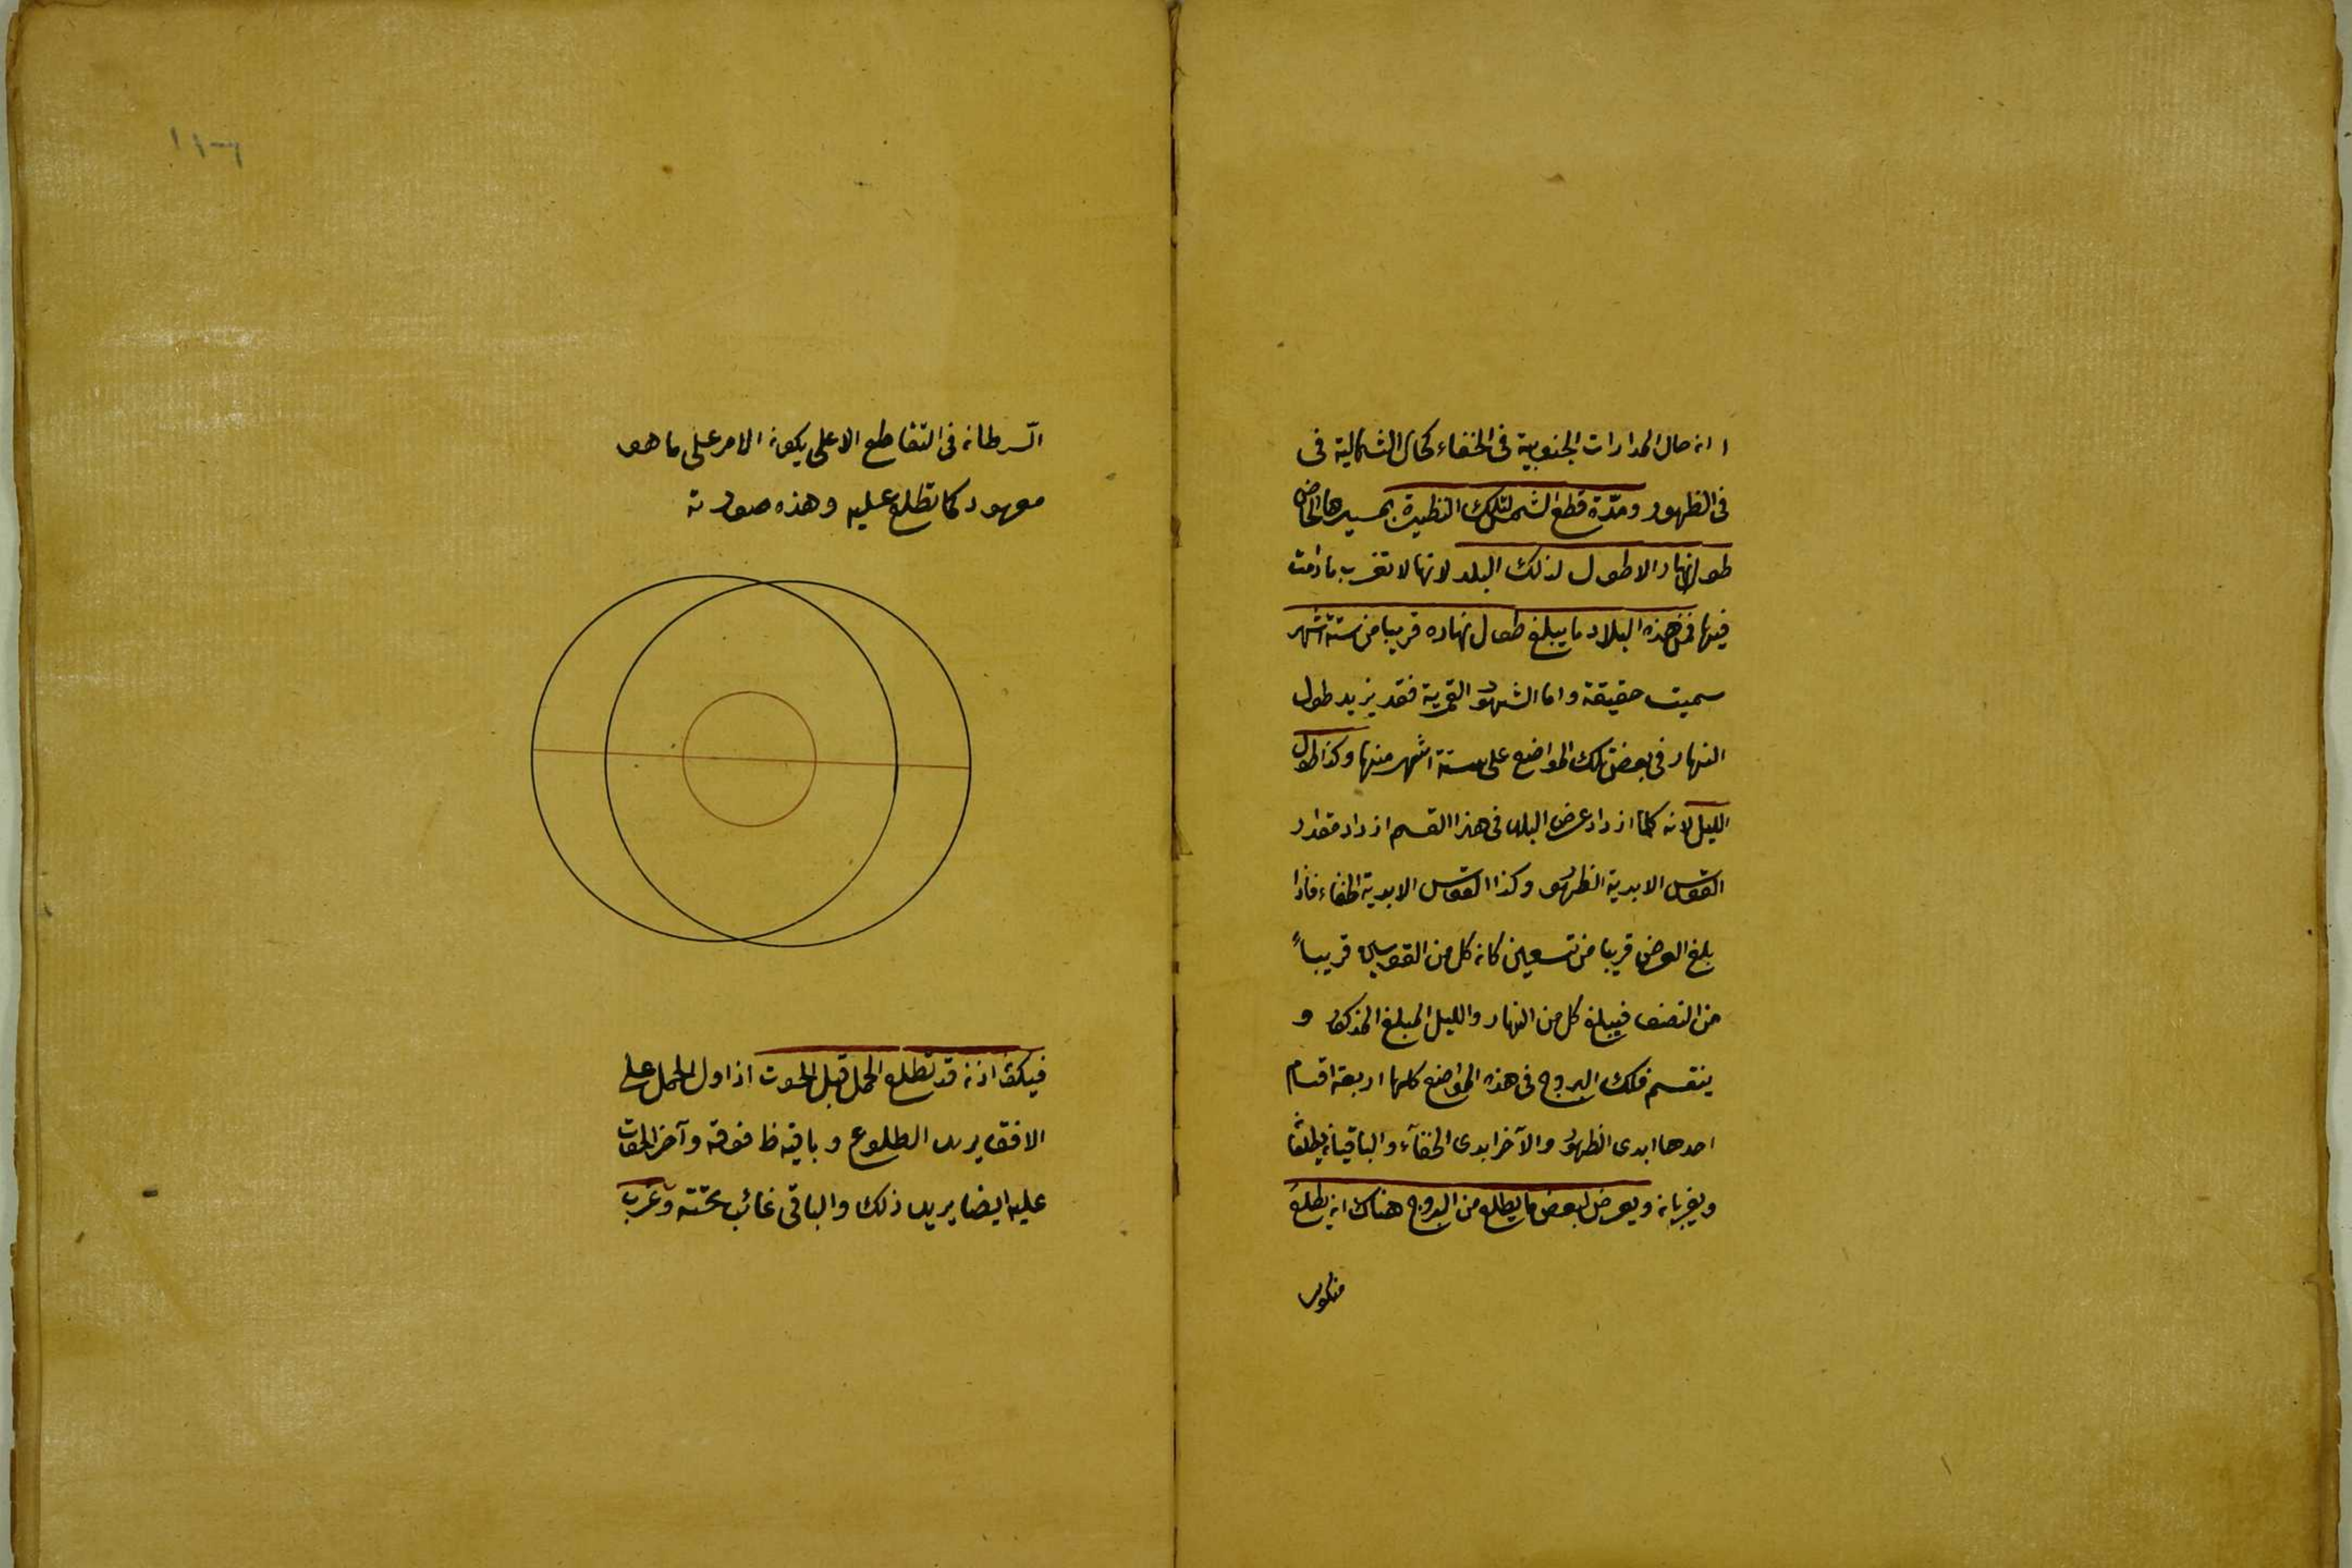 ا ان حال المدارات الجنوبية فى الخفاء كحال الشمالية فى
فى الظهور ومدّة قطع الشمس لتلك النظيرة بمسيرها الخاص
طول النهار الاطول لذلك البلد لانها لا تغرب ما دامت
فيها فمن هذه البلاد ما يبلغ طول نهاره قريبا من ستة اشهر
سميت حقيقة واما الشهور القمرية فقد يزيد طول
النهار فى بعض تلك المواضع على ستة اشهر منها وكذا طول
الليل لانه كلما ازداد عرض البلد فى هذا القسم ازداد مقدار
القوس الابدية الظهور وكذا القوس الابدية الخفاء فاذا
بلغ العرض قريبا من تسعين كان كل من القوسين قريباً
من النصف فيبلغ كل من النهار والليل المبلغ المذكور و
ينقسم فلك البروج فى هذه المواضع كلها اربعة اقسام
احدها ابدى الظهور والآخر ابدى الخفآء والباقيان يطلعان
ويغربان ويعرض لبعض ما يطلع من البروج هناك ان يطلع
منكوسا
١١٠٦
السّرطان فى التقاطع الاعلى يكون الامر على ما هو
معهود كما تطلع عليه وهذه صورته
فيكون اذن قد تطلع الحمل قبل الحوت اذ اول الحمل على
الافق يريد الطلوع وباقيه ظ فوقه وآخر الحوت
عليه ايضا يريد ذلك والباقى غائب تحته وتغرب